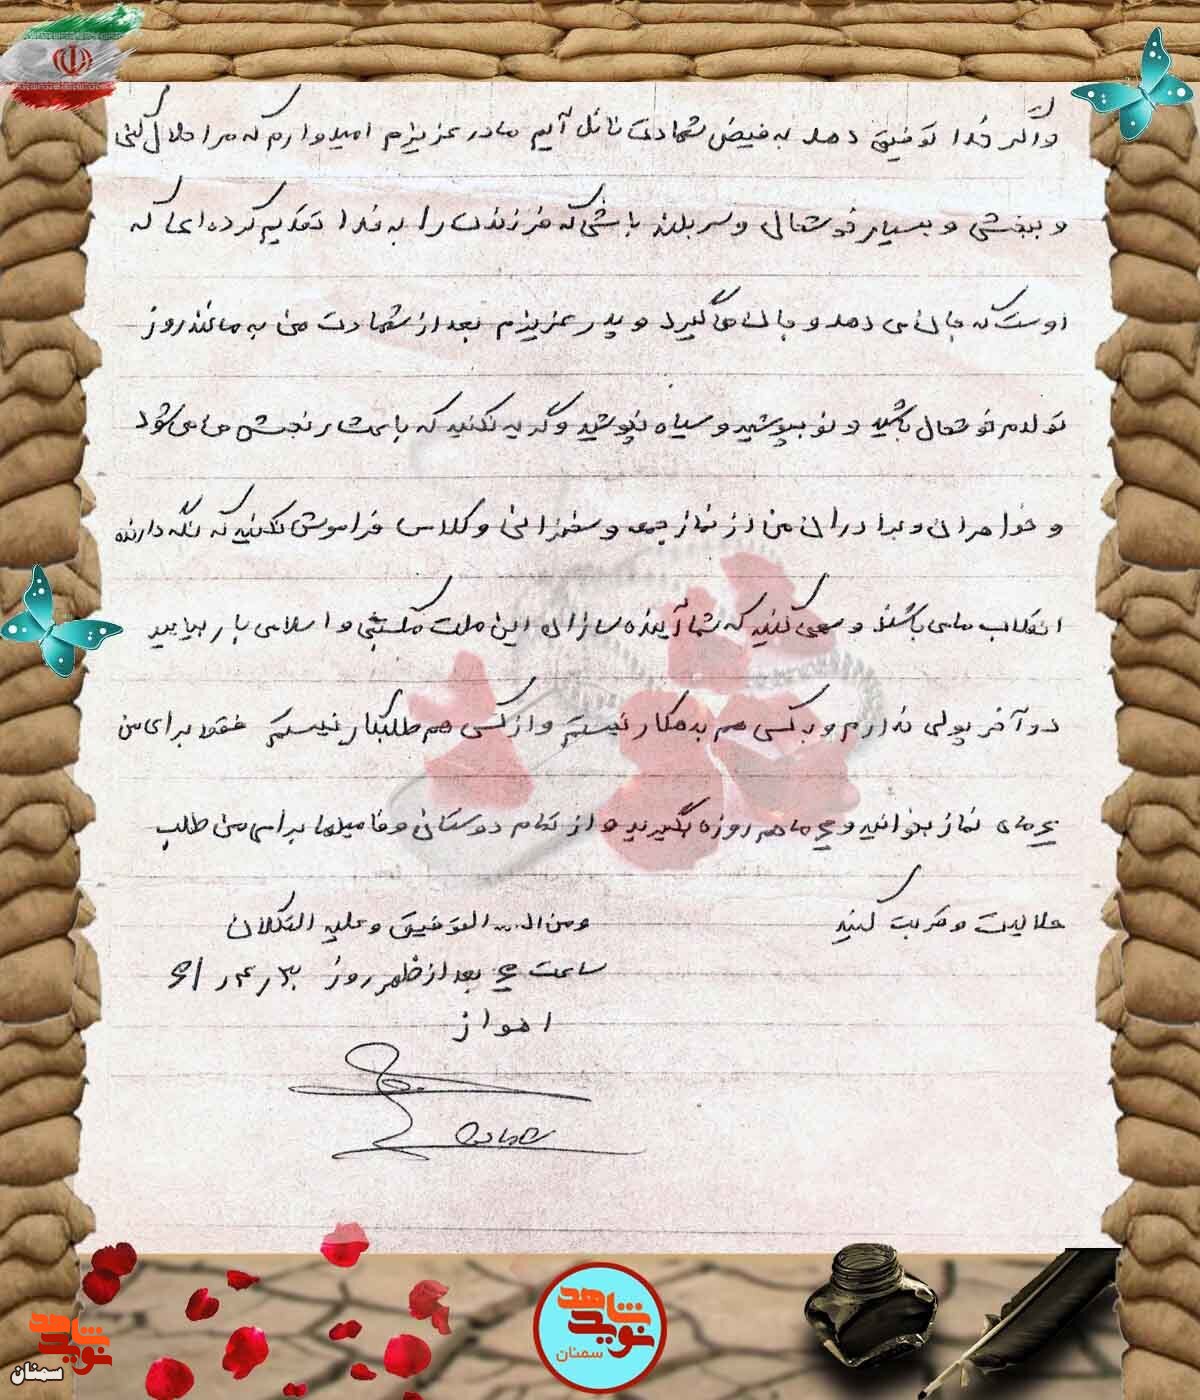 و اگر خدا توفیق دهد به فیض شهادت نائل آیم مادر عزیزم امیدوارم که مرا حلال کنی
و ببخشی و بسیار خوشحال و سربلند باشی که فرزندت را به خدا تقدیم کرده‌ای که
اوست که جان می دهد و جان می گیرد و پدر عزیزم بعد از شهادت من به مانند روز
تولدم خوشحال باشید و نو بپوشید و سیاه نپوشید و گریه نکنید که باعث رنجش ما می شود
و خواهران و برادران من از نماز جمعه و سخنرانی و کلاس فراموش نکنید که نگه دارنده
انقلاب ما می باشند و سعی کنید که شما آینده سازان این ملت مکتبی و اسلامی بار بیایید
در آخر پولی ندارم و به کسی هم بدهکار نیستم و از کسی هم طلبکار نیستم فقط برای من
ماه نماز بخوانید و ماه هم روزه بگیرید و از تمام دوستان و فامیلها برای من طلب
حلالیت و قربت کنید
ومن ال... التوفیق و علیه التکلان
ساعت ۴ بعد از ظهر روز ۳۰ر۴ر۶۱
اهواز
نوید شاهد
سمنان
نوید شاهد
سمنان